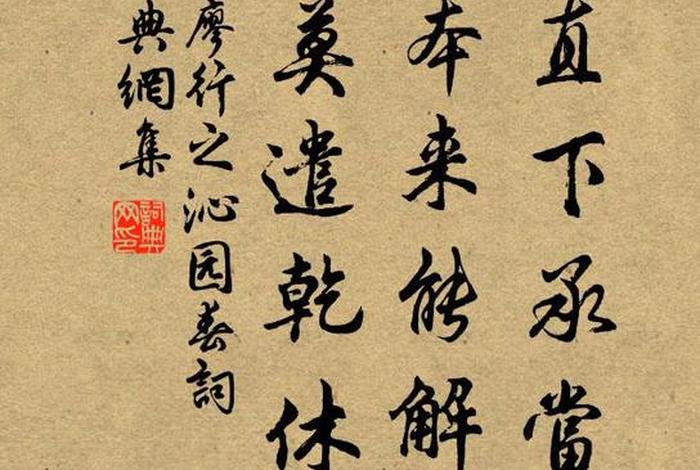 直下承當
本来能解
莫遣乾休
廖行之沁园春詞
典網集
詞典
网印